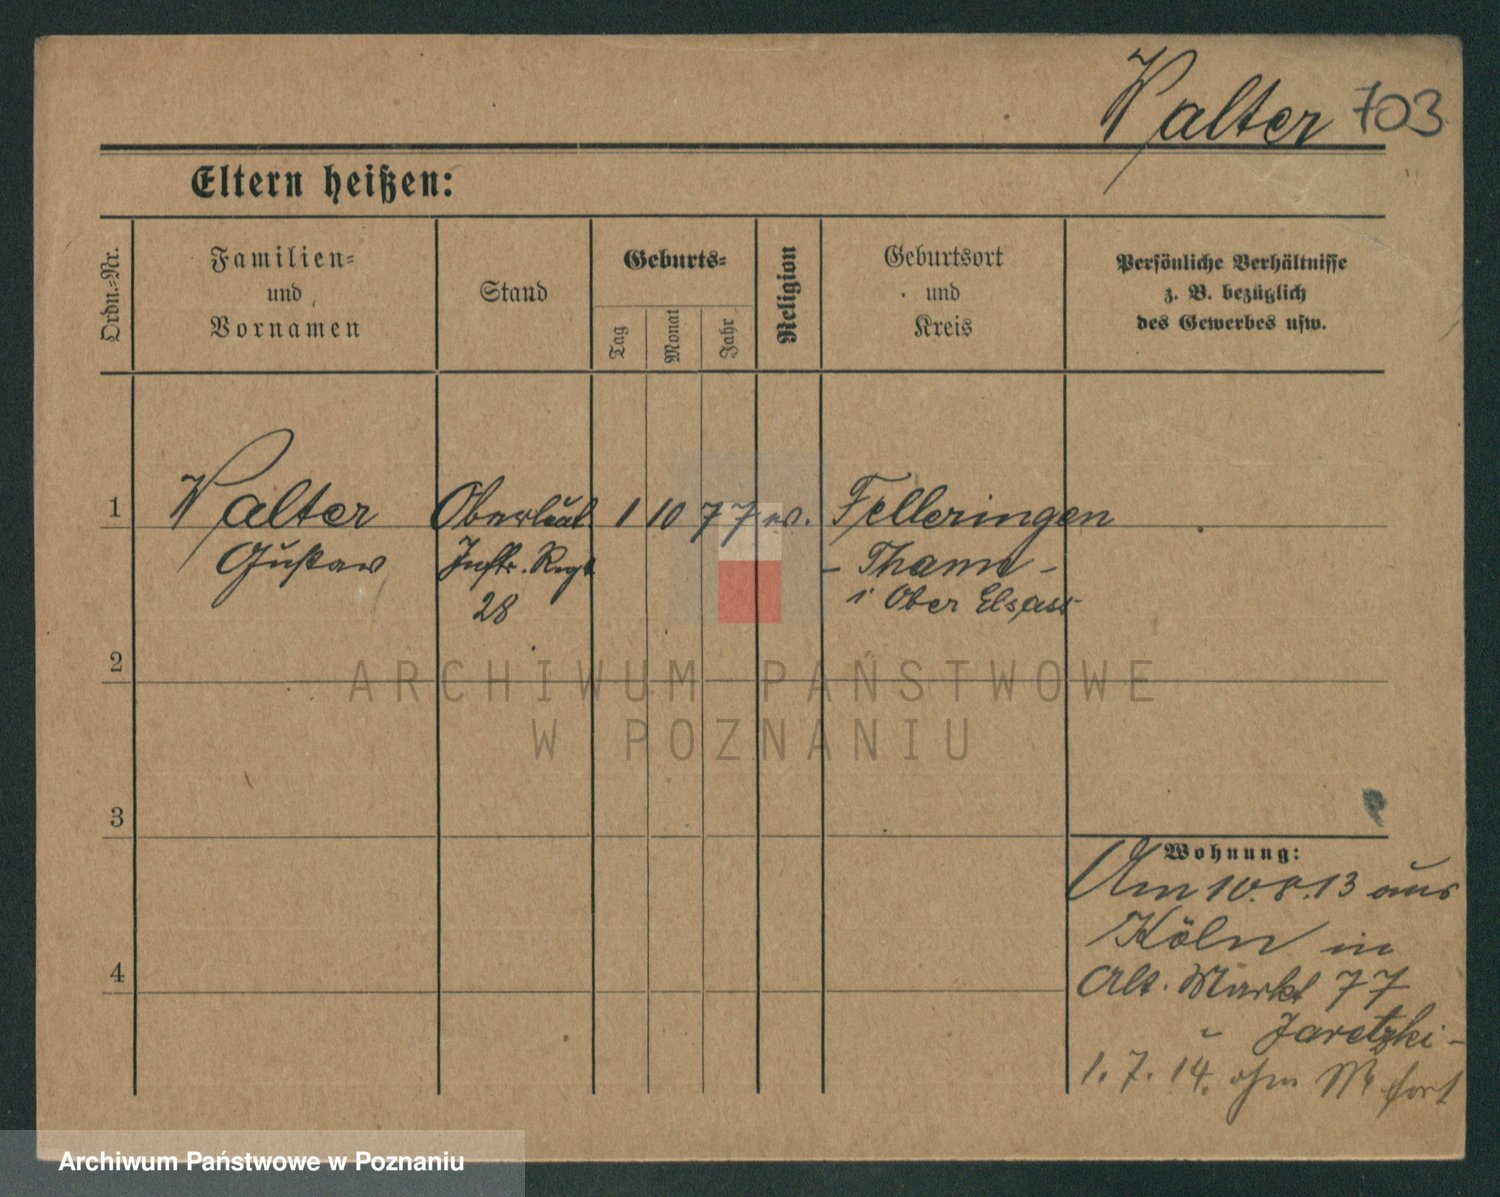 Walter 703
Eltern heißen:
Ordn.-Nr.
Familien-
und
Vornamen
Stand
Geburts-
Tag
Monat
Jahr
Religion
Geburtsort
und
Kreis
Persönliche Verhältnisse
z. B. bezüglich
des Gewerbes usw.
1 Walter Oberleut. 1 10 77 ev. Felleringen
Gustav Inftr. Regt. - Thann -
28 i Ober Elsass
2
ARCHIWUM PAŃSTWOWE
W POZNANIU
3
Wohnung:
Am 10.8.13 aus
Köln in
Alt. Markt 77
Jaretzki -
1.7.14. ohn M fort
4
Archiwum Państwowe w Poznaniu